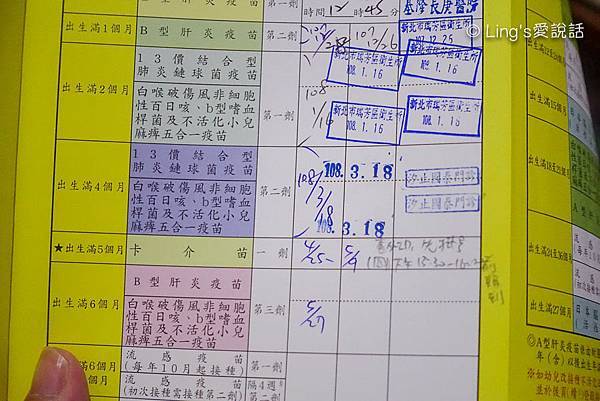 © Ling's愛說話
第一劑
時間12時45分
基隆長庚醫院
出生滿1個月
B型肝炎疫苗
第二劑
107
107
12/26
107.12.26
出生滿2個月
13價結合型
肺炎鏈球菌疫苗
白喉破傷風非細胞
性百日咳、b型嗜血
桿菌及不活化小兒
麻痺五合一疫苗
第一劑
108
1/16
新北市瑞芳區衛生所
108. 1. 16
新北市瑞芳區衛生所
108. 1. 16
新北市瑞芳區衛生所
108. 1. 16
新北市瑞芳區衛生所
108. 1. 16
出生滿4個月
13價結合型
肺炎鏈球菌疫苗
白喉破傷風非細胞
性百日咳、b型嗜血
桿菌及不活化小兒
麻痺五合一疫苗
第二劑
108
3/18
108. 3.18
108. 3.18
汐止國泰門診
汐止國泰門診
★出生滿5個月
卡介苗
一劑
出生滿6個月
B型肝炎疫苗
白喉破傷風非細胞
性百日咳、b型嗜血
桿菌及不活化小兒
麻痺五合一疫苗
第三劑
6個月
流感疫苗
(每年10月起接種)
第一劑
個月
流感疫苗
(初次接種需接種第二劑)
隔4週
出生滿12至15個月
出生滿15個月
出生滿18至21個月
出生滿24至36個月
出生滿27個月
A型
流
(每年
(初次接
日本腦
◎A型肝炎疫苗
年(含)以後出生年
※如幼兒改接種不活化
並於後頁